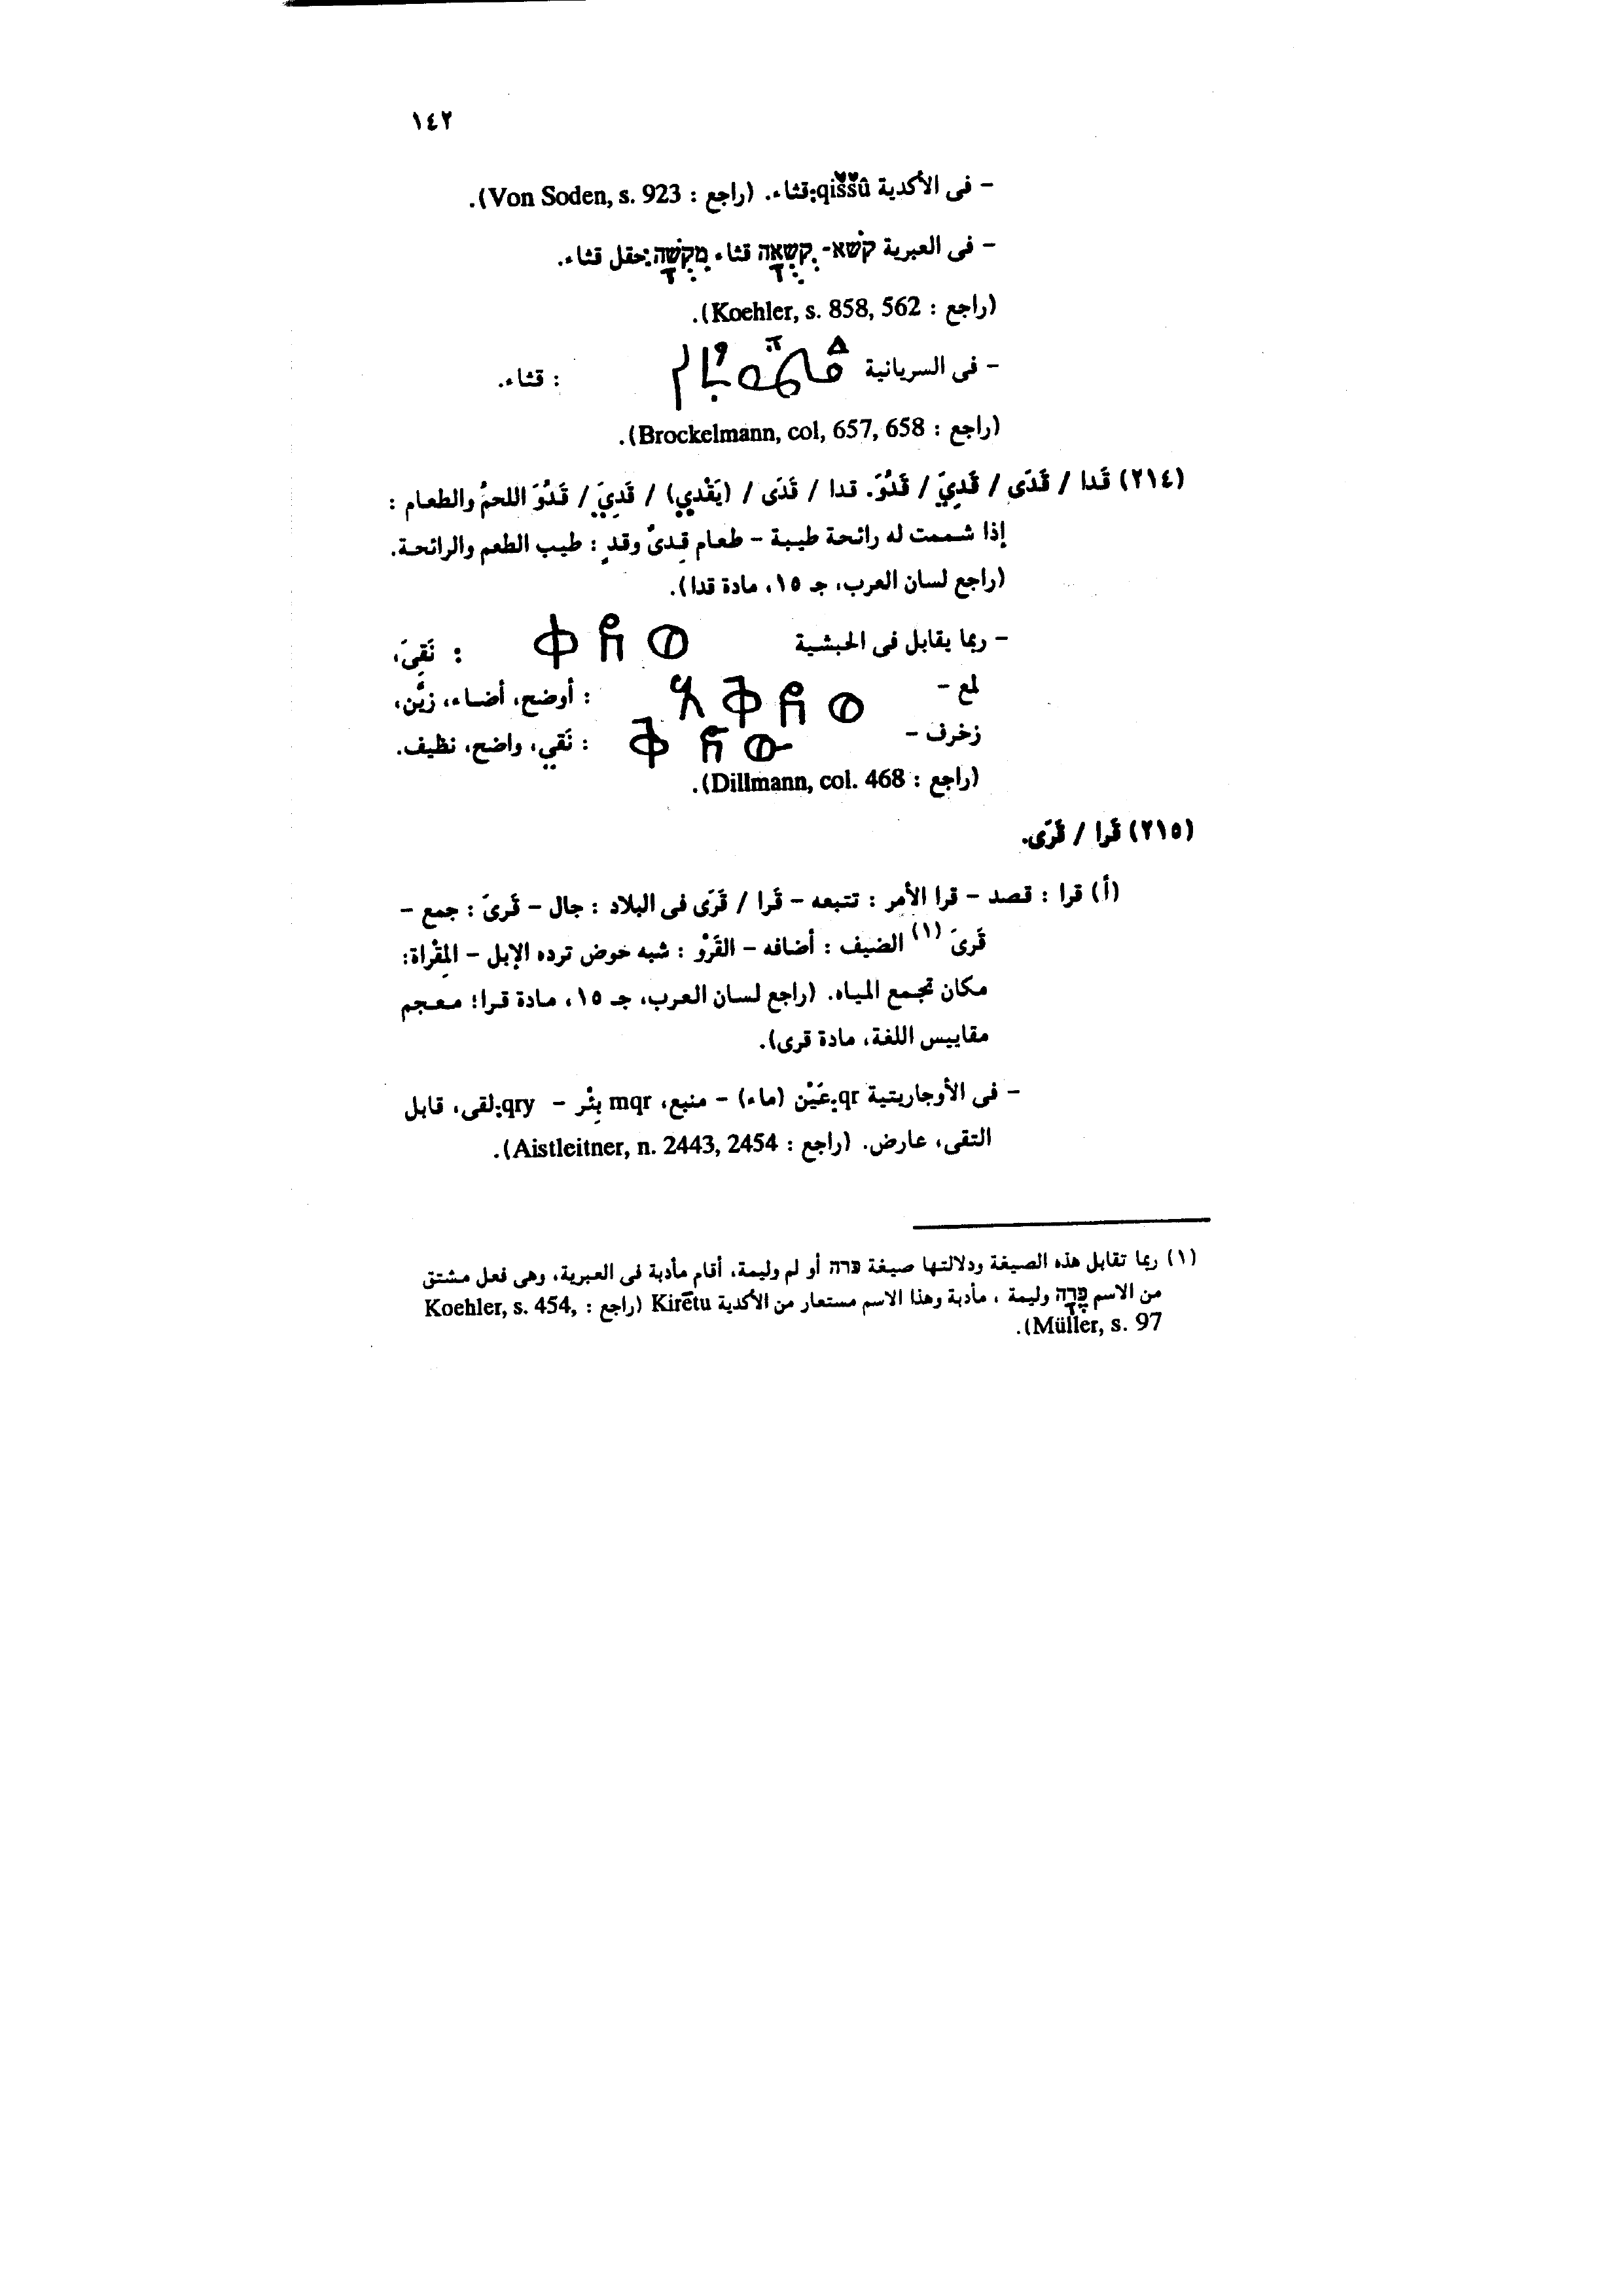 ١٤٢
- فى الأكدية qiššû: قثاء. (راجع : Von Soden, s. 923).
- فى العبرية קשא- קִשֻׁאָה قثاء، מִקְשָׁה: حقل قثاء.
(راجع : Koehler, s. 858, 562).
- فى السريانية : قثاء.
(راجع : Brockelmann, col, 657, 658).
(٢١٤) قَدا / قَدَى / قَدِيَ / قَدُوَ. قدا / قَدَى / (يَقْدي) / قَدِيَ / قَدُوَ اللحمُ والطعام :
إذا شممت له رائحة طيبة - طعام قدىٌ وقدٍ : طيب الطعم والرائحة.
(راجع لسان العرب، جـ ١٥، مادة قدا).
- ربما يقابل فى الحبشية ቀደወ : نَقِىَ،
لمع - አቅደወ : أوضح، أضاء، زيَّن،
زخرف - ቅደው : نَقي، واضح، نظيف.
(راجع : Dillmann, col. 468).
(٢١٥) قَرا / قَرَى.
(أ) قرا : قصد - قرا الأمر : تتبعه - قَرا / قَرَى فى البلاد : جال - قَرىَ : جمع -
قَرىَ (١) الضيف : أضافه - القَرْو : شبه حوض ترده الإبل - المِقْراة:
مكان تجمع المياه. (راجع لسان العرب، جـ ١٥، مادة قرا؛ معجم
مقاييس اللغة، مادة قرى).
- فى الأوجاريتية qr: عَيْن (ماء) - منبع، mqr بِئْر - qry: لقى، قابل
التقى، عارض. (راجع : Aistleitner, n. 2443, 2454).
(١) ربما تقابل هذه الصيغة ودلالتها صيغة כרה أو لم وليمة، أقام مأدبة فى العبرية، وهى فعل مشتق
من الاسم כֵּרָה وليمة ، مأدبة وهذا الاسم مستعار من الأكدية Kirētu (راجع : Koehler, s. 454,
Müller, s. 97).